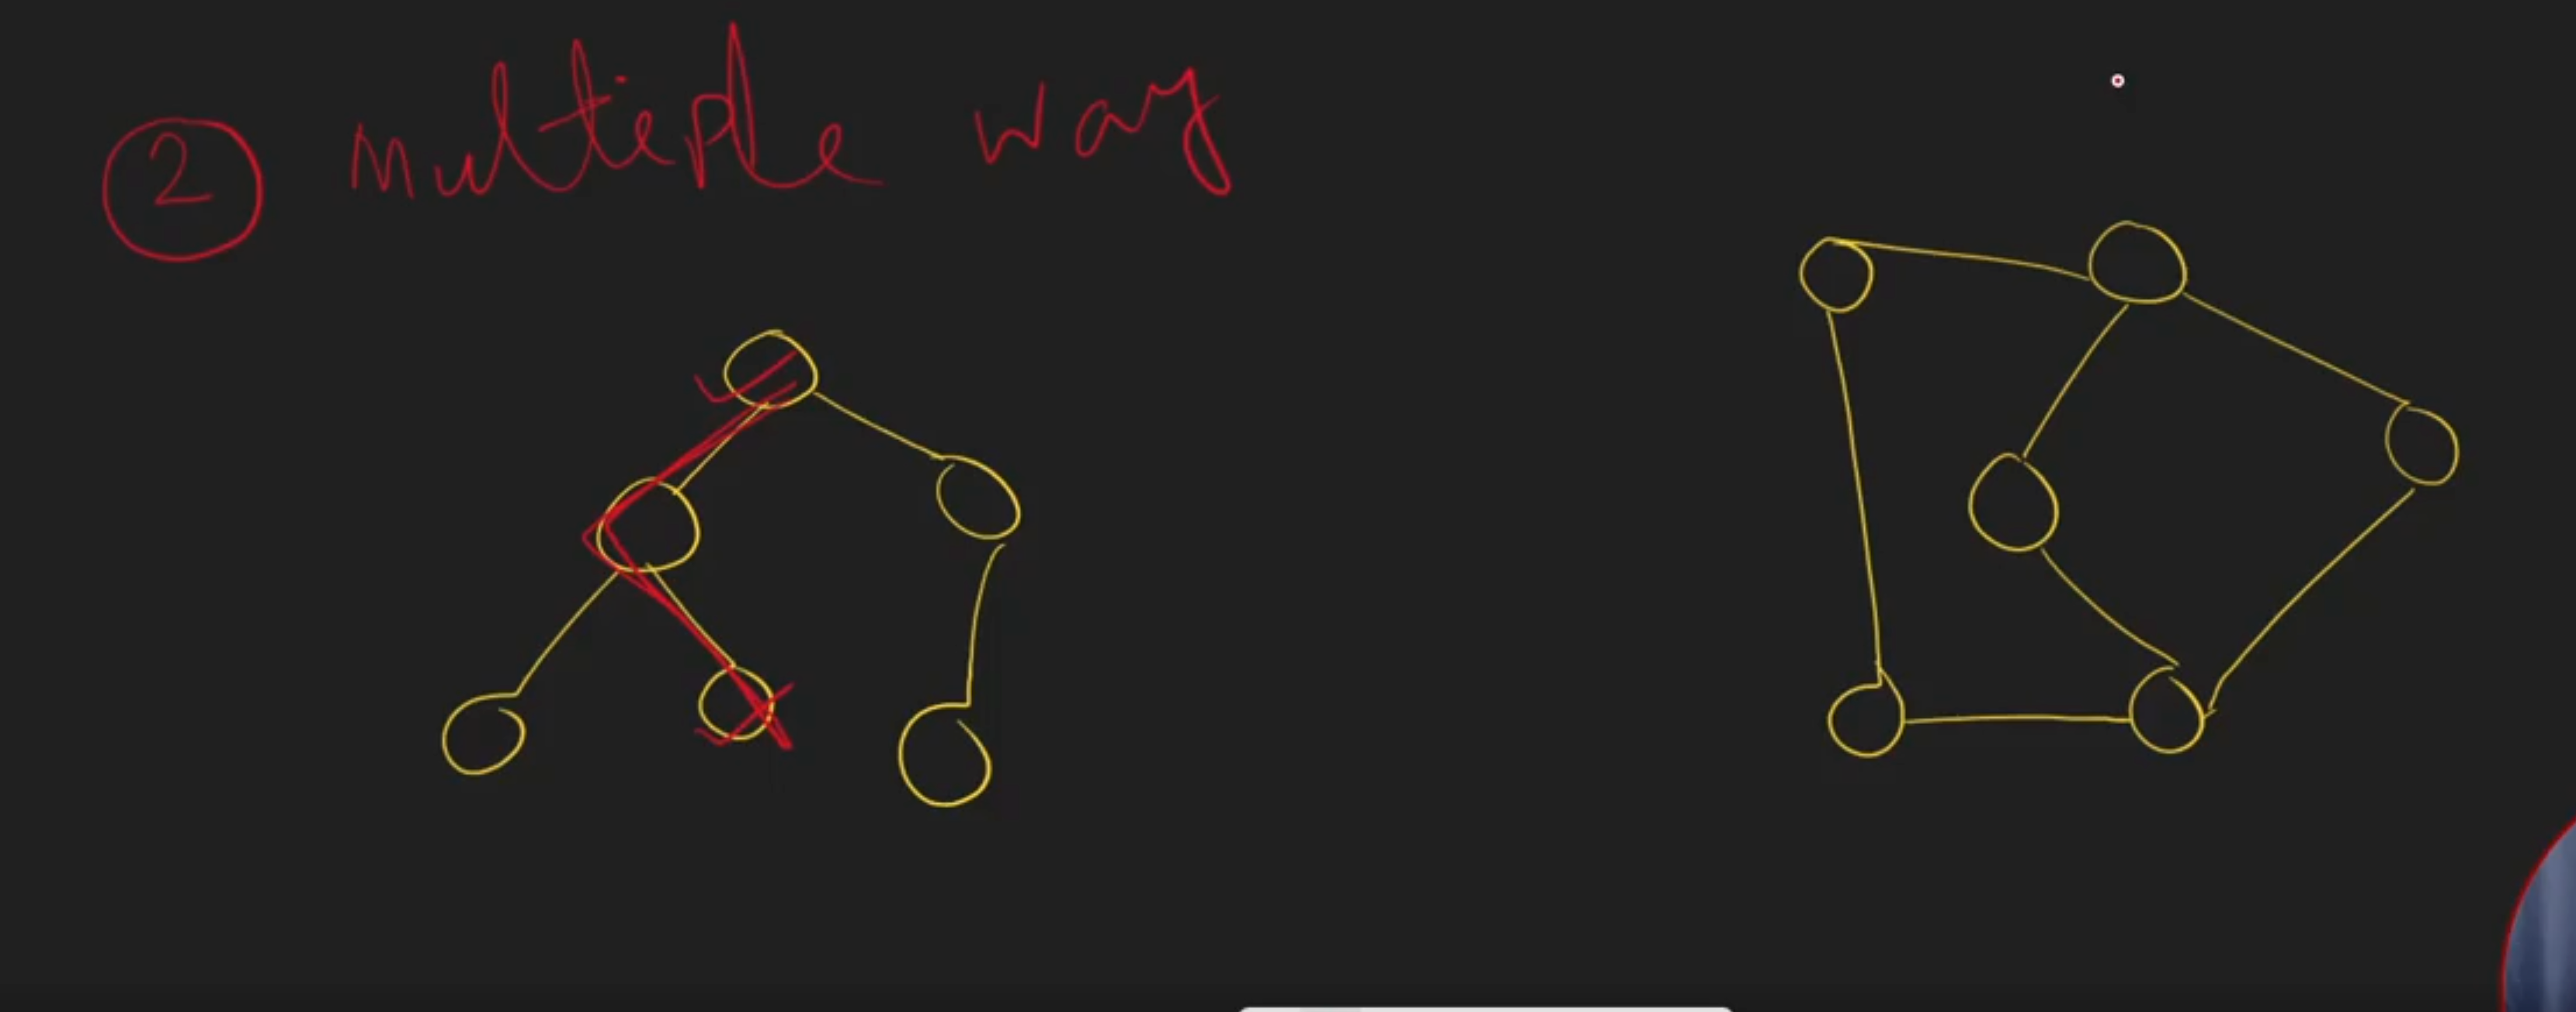 ② Multiple way